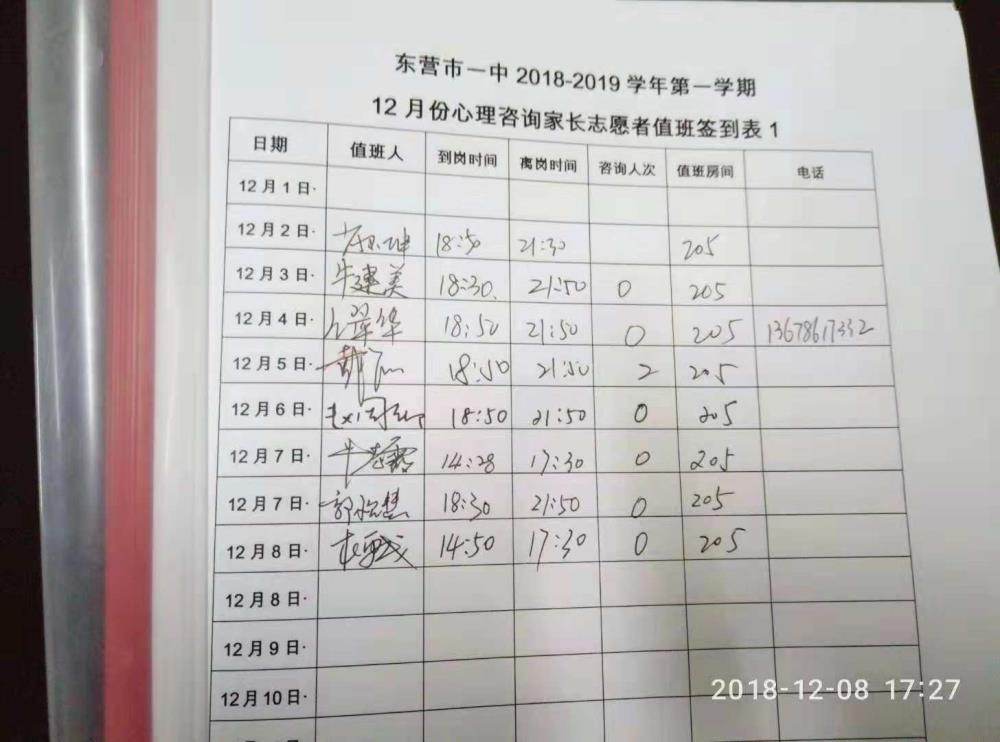 东营市一中 2018-2019 学年第一学期
12 月份心理咨询家长志愿者值班签到表 1
日期 值班人 到岗时间 离岗时间 咨询人次 值班房间 电话
12 月 1 日·
12 月 2 日· 18:50 21:30 205
12 月 3 日· 牛建美 18:30. 21:50 0 205
12 月 4 日· 翠华 18:50 21:50 0 205 13678617332
12 月 5 日· 18:50 21:50 2 205
12 月 6 日· 18:50 21:50 0 205
12 月 7 日· 14:28 17:30 0 205
12 月 7 日· 郭 18:30 21:50 0 205
12 月 8 日· 14:50 17:30 0 205
12 月 8 日·
12 月 9 日·
12 月 10 日·
2018-12-08 17:27